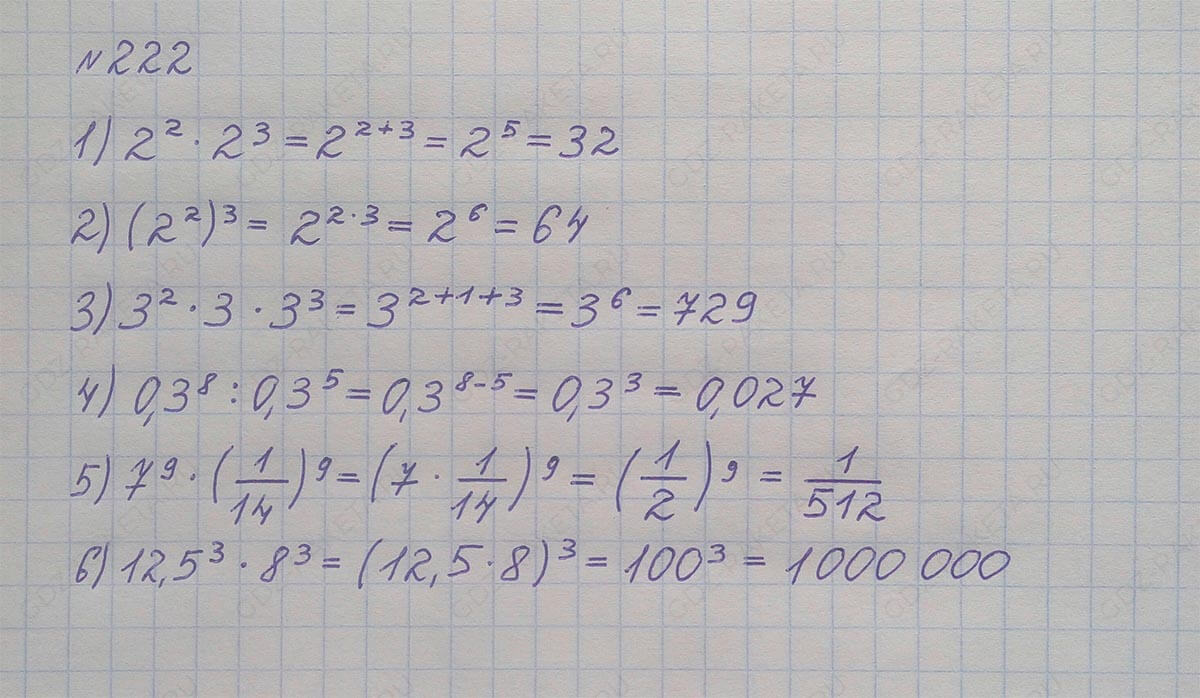 №222
1) 2² · 2³ = 2²⁺³ = 2⁵ = 32
2) (2²)³ = 2²·³ = 2⁶ = 64
3) 3² · 3 · 3³ = 3²⁺¹⁺³ = 3⁶ = 729
4) 0,3⁸ : 0,3⁵ = 0,3⁸⁻⁵ = 0,3³ = 0,027
5) 7⁹ · (1/14)⁹ = (7 · 1/14)⁹ = (1/2)⁹ = 1/512
6) 12,5³ · 8³ = (12,5 · 8)³ = 100³ = 1000 000
GDZ-RAKETA.RU